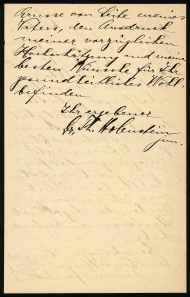 Grüsse von Seite meines
Vaters, den Ausdruck
meiner vorzüglichen
Hochschätzung und meine
besten Wünsche für Ihr
gesundheitliches Wohl-
befinden
Ihr ergebener
G. Th. Hohenstein
jun.